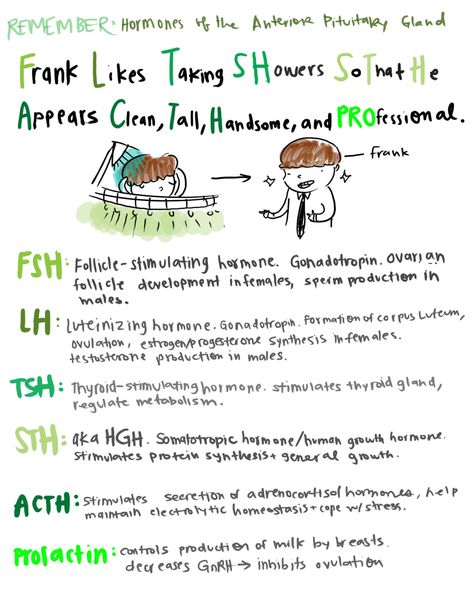 REMEMBER: Hormones of the Anterior Pituitary Gland
Frank Likes Taking SHowers SoThat He
Appears Clean, Tall, Handsome, and PROfessional.
frank
FSH: Follicle-stimulating hormone. Gonadotropin. ovarian
follicle development in females, sperm production in
males.
LH: Luteinizing hormone. Gonadotropin. Formation of corpus luteum,
ovulation, estrogen/progesterone synthesis in females.
testosterone production in males.
TSH: Thyroid-stimulating hormone. stimulates thyroid gland,
regulate metabolism.
STH: aka HGH. Somatotropic hormone/human growth hormone.
Stimulates protein synthesis + general growth.
ACTH: Stimulates secretion of adrenocortisol hormones, help
maintain electrolytic homeostasis + cope w/ stress.
Prolactin: controls production of milk by breasts.
decreases GnRH → inhibits ovulation